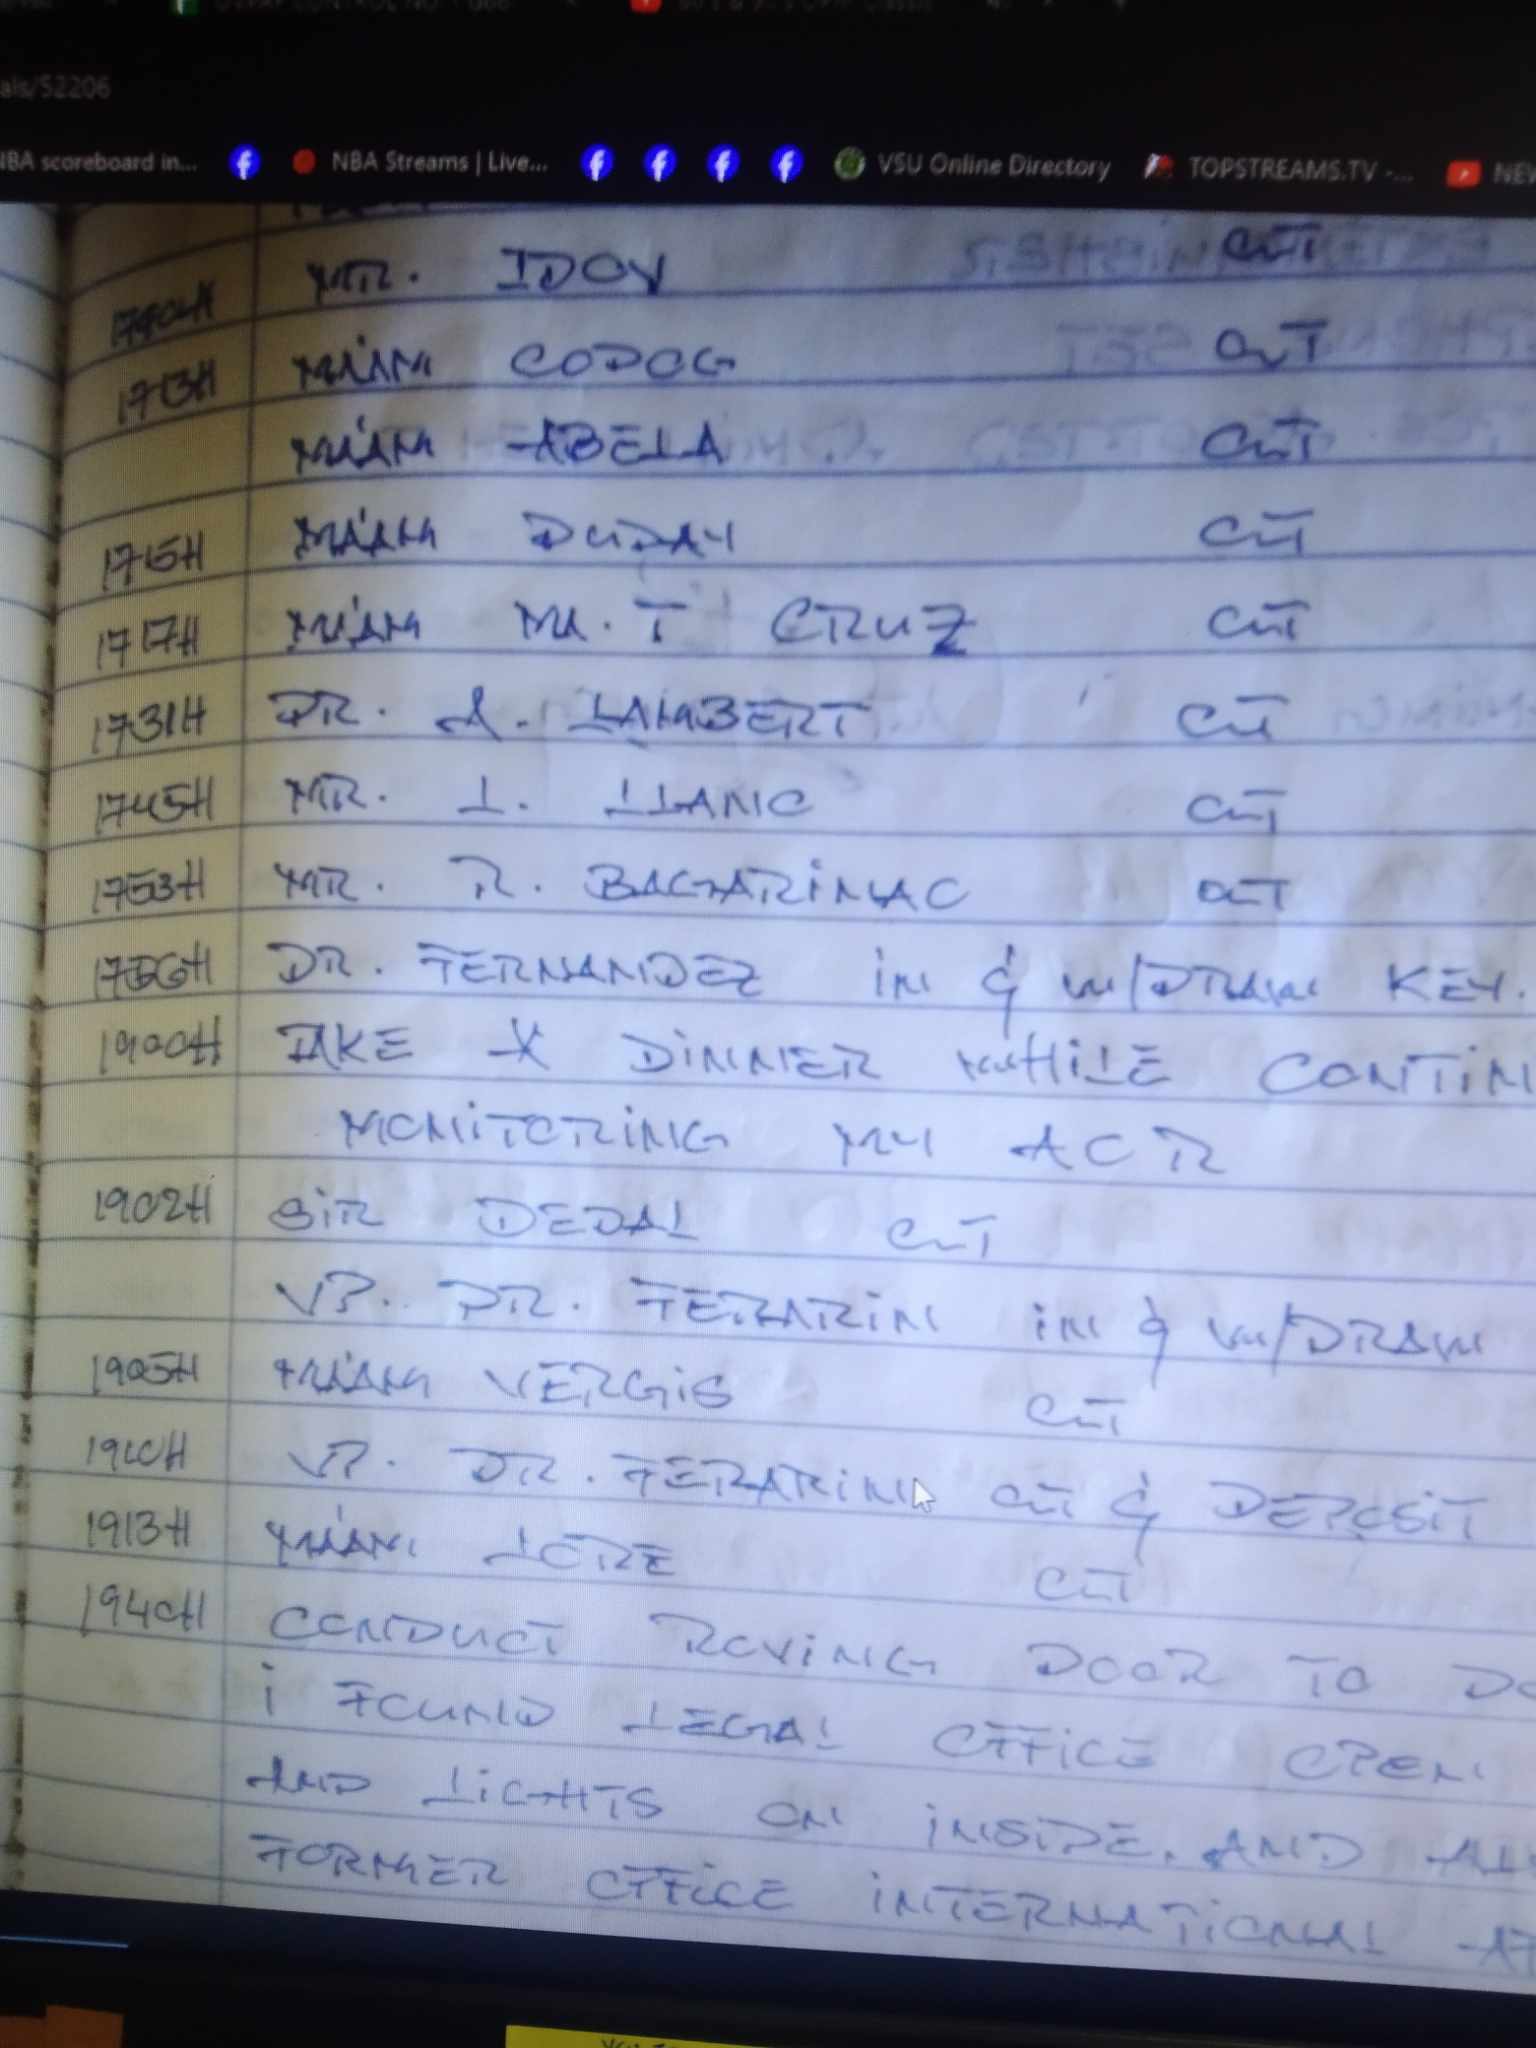 als/52206
NBA scoreboard in... NBA Streams | Live... VSU Online Directory TOPSTREAMS.TV -... NEW
MR. IDOY OUT
1713H MA'AM CODOG OUT
MA'AM ABELA OUT
1715H MA'AM DUDAY OUT
1717H MA'AM MA. T CRUZ OUT
1731H DR. A. LAMBERT OUT
1745H MR. L. LLANO OUT
1753H MR. R. BAGARINAO OUT
1756H DR. FERNANDEZ IN & W/DRAW KEY.
1900H TAKE A DINNER WHILE CONTIN
MONITORING MY AOR
1902H SIR DEDAL OUT
VP. DR. FERARIN IN & W/DRAW
1905H MA'AM VERGIS OUT
1910H VP. DR. FERARIN OUT & DEPOSIT
1913H MA'AM LORE OUT
1940H CONDUCT ROVING DOOR TO DO
I FOUND LEGAL OFFICE OPEN
AND LIGHTS ON INSIDE. AND ALS
FORMER OFFICE INTERNATIONAL AF